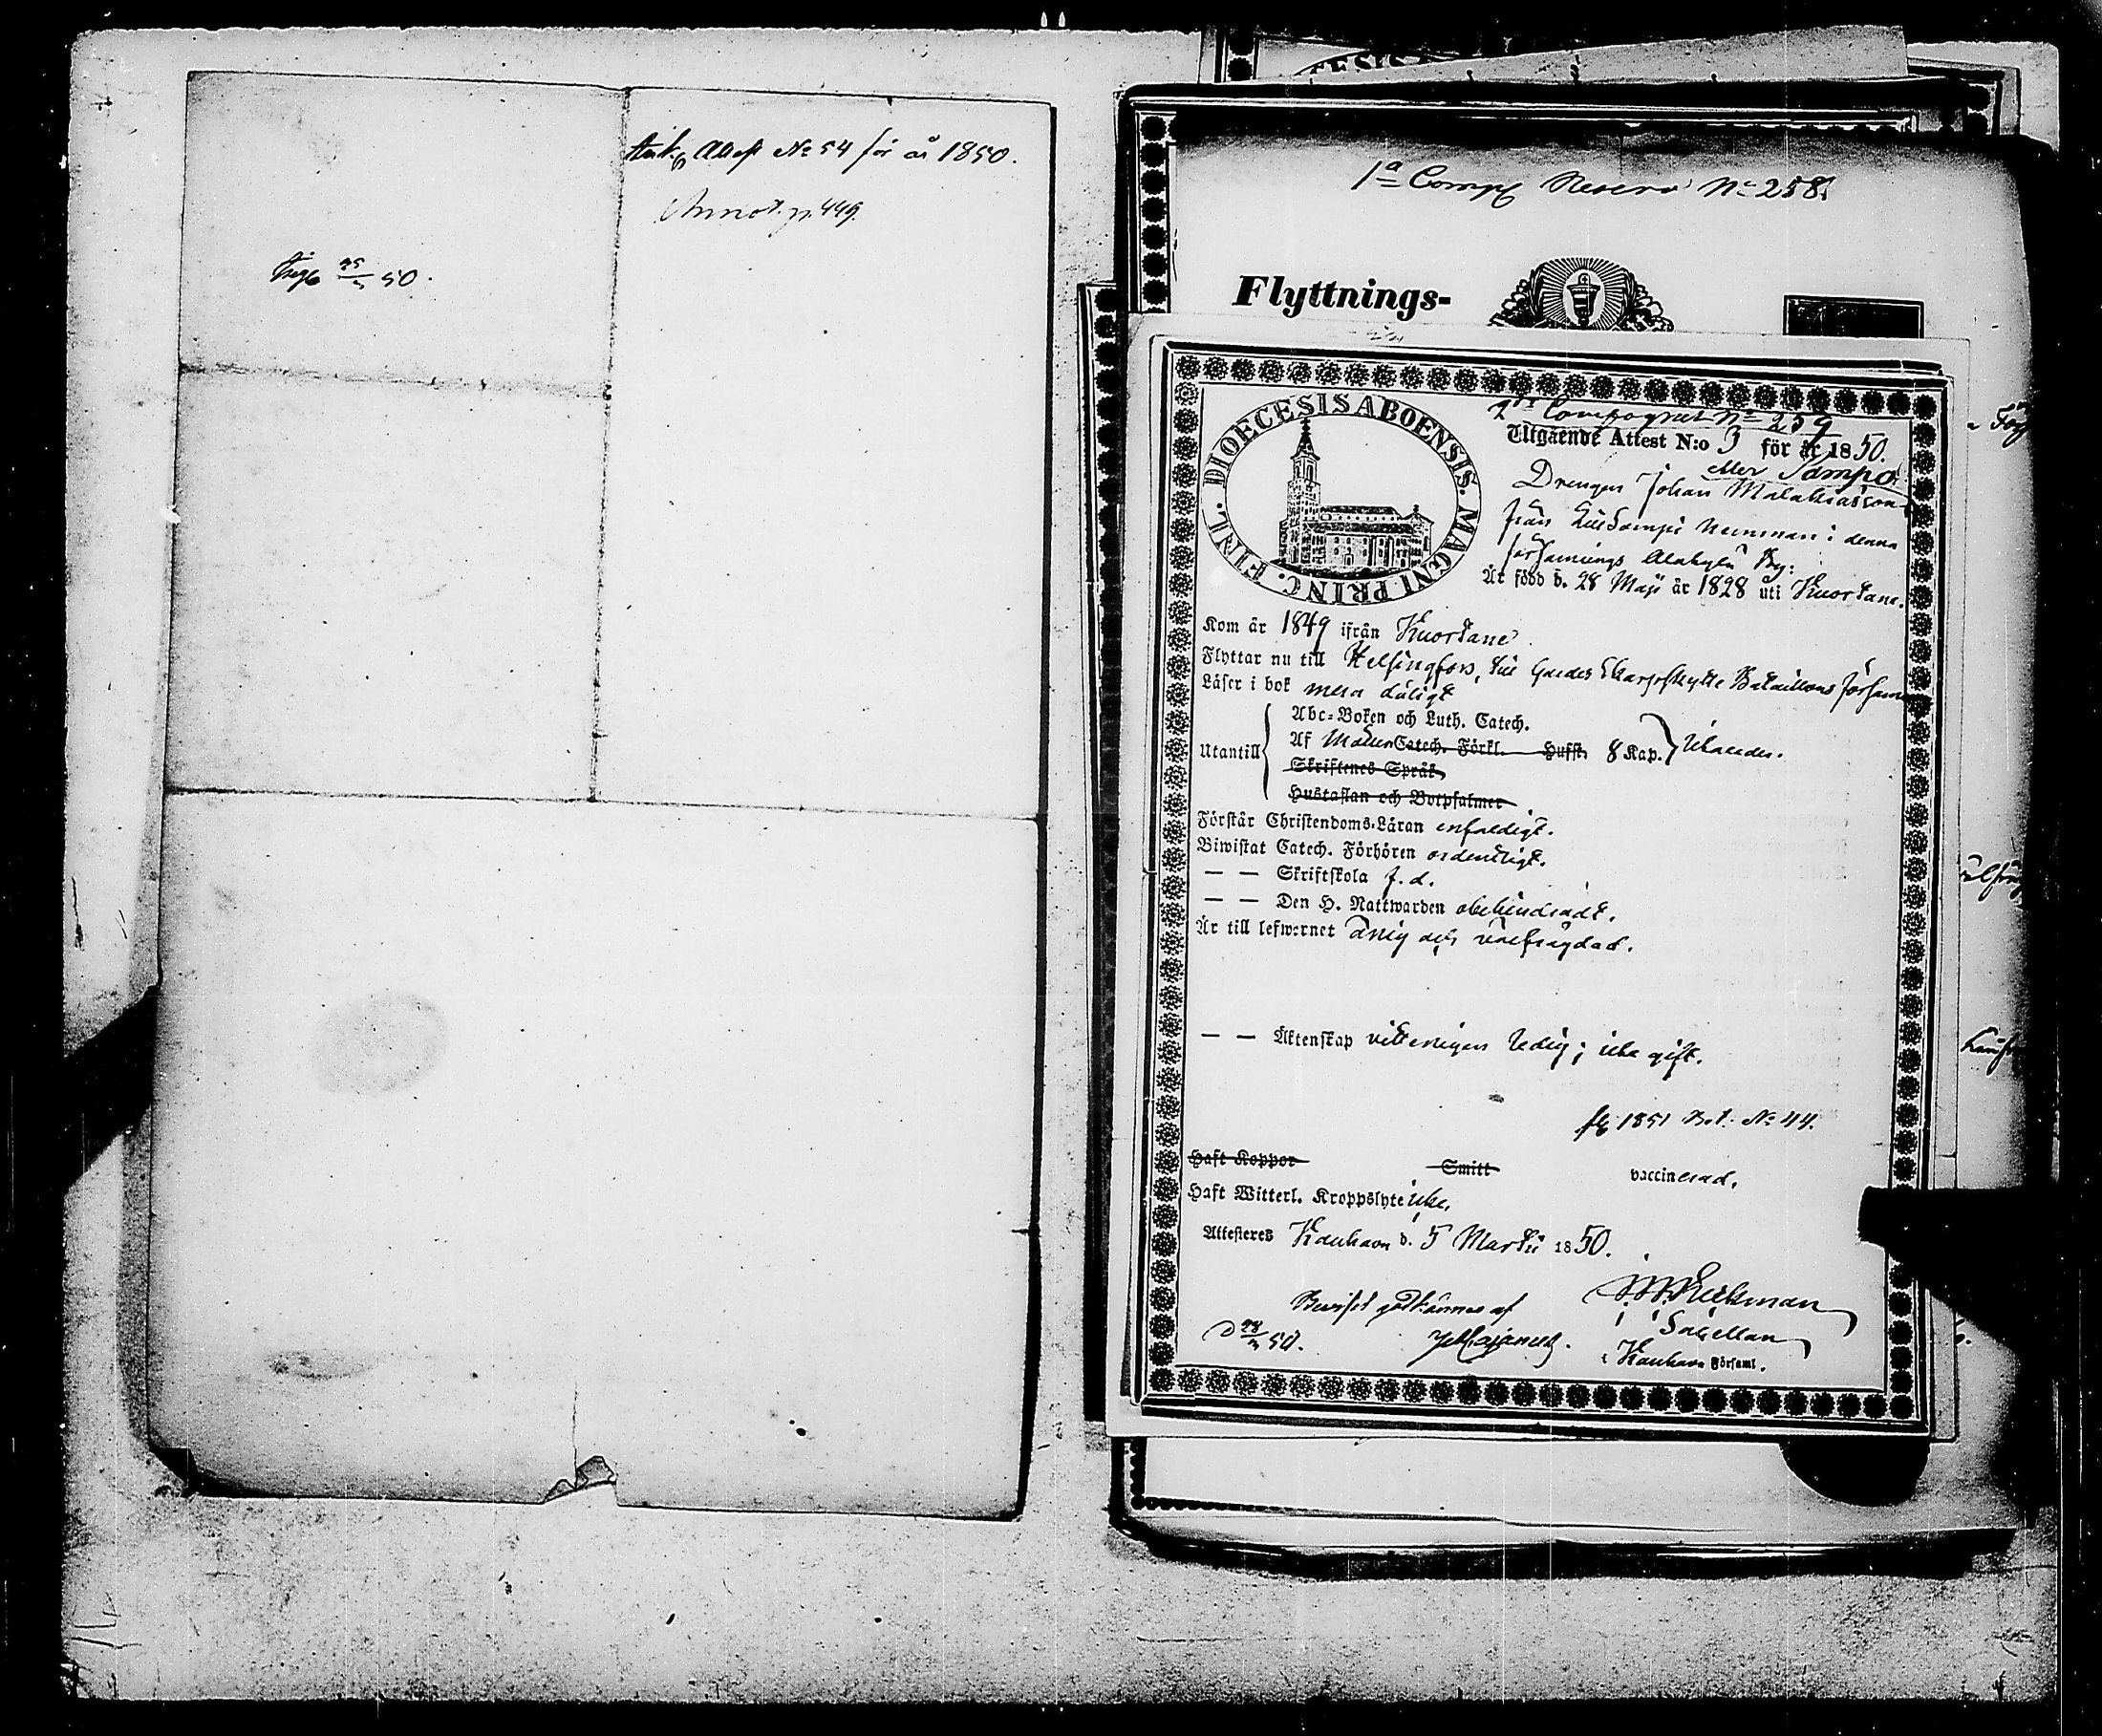 Ank. Attest No 54 för år 1850.
Annot. p. 449.
50.
1a Comp Reserv No 258.
Flyttnings-
DIOECESIS ABOENSIS. MAGNI PRINC. FINL.
No 259
Utgående Attest N:o 3 för år 1850.
eller Sampo
Drengen Johan Malakiasson
från hemman i denna
församlings Alakylä By:
Är född d. 28 Maji år 1828 uti Kuortane.
Kom år 1849 ifrån Kuortane.
Flyttar nu till Helsingfors, till Gardes Skarpskytte Bataillons församl
Läser i bok mera dåligt
Utantill
Abc-Boken och Luth. Catech.
Af Möllers Catech. Förkl. Hufst. 8 Kap. likaledes.
Skriftenes Språk
Hustaflan och Botpsalmer
Förstår Christendoms-Läran enfaldigt.
Biwistat Catech. Förhören ordentligt.
— — Skriftskola f. d.
— — Den H. Nattwarden obehindradt.
Är till lefwernet ärlig och välfrägdad.
— — Äktenskap vitterligen ledig; icke gift.
1851 Bet. No 44.
Haft Koppor Smitt vaccinerad.
Haft Witterl. Kroppslyte icke.
Attesteres Kauhava d. 5 Martii 1850.
Beviset godkännes af
50.
Cajanus.
Hickman
Sacellan
i Kauhava Församl.